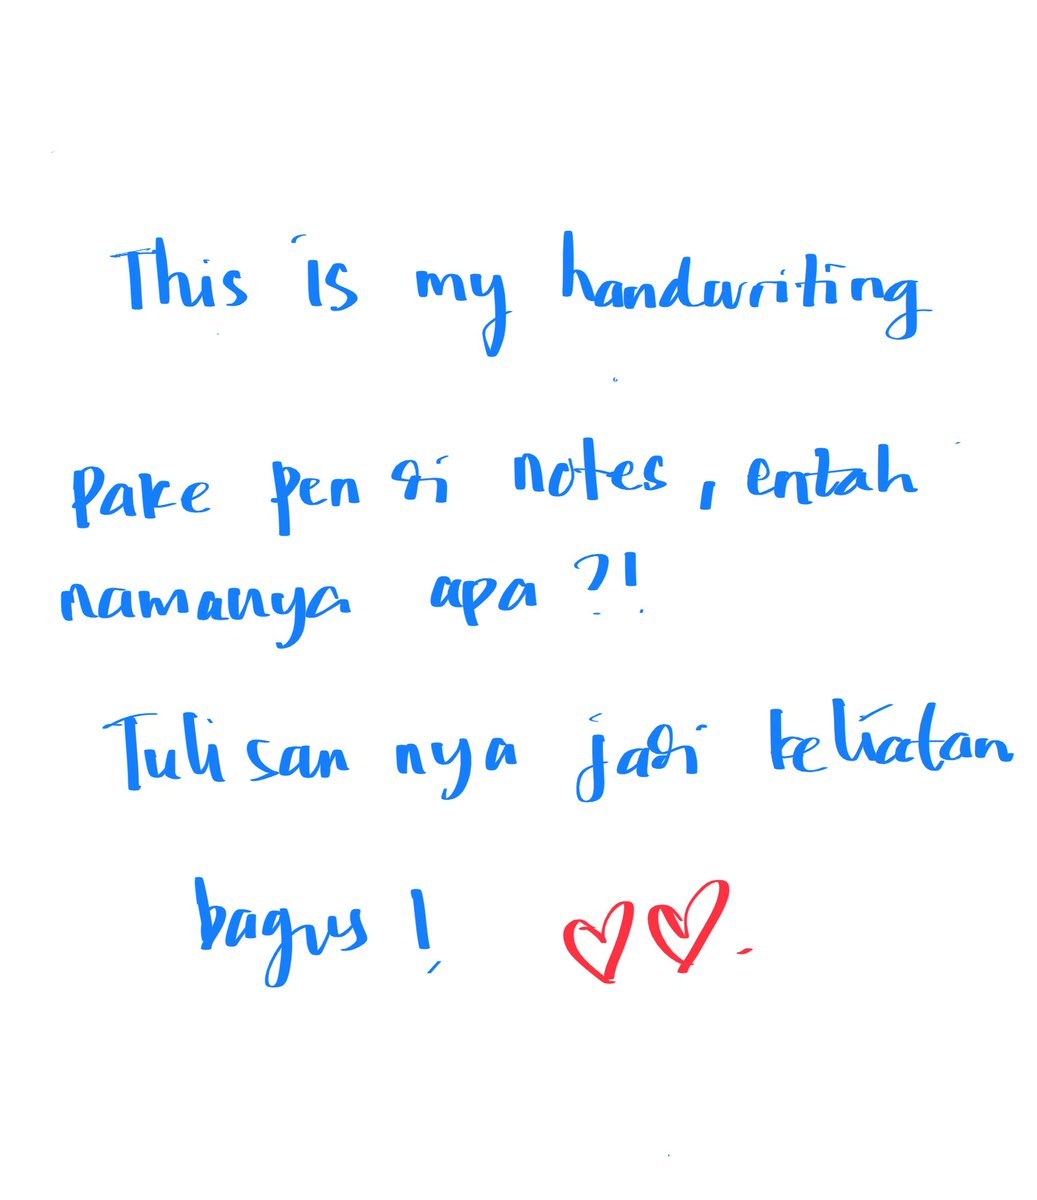 This is my handwriting
pake pen di notes, entah
namanya apa?!
Tulisan nya jadi keliatan
bagus!